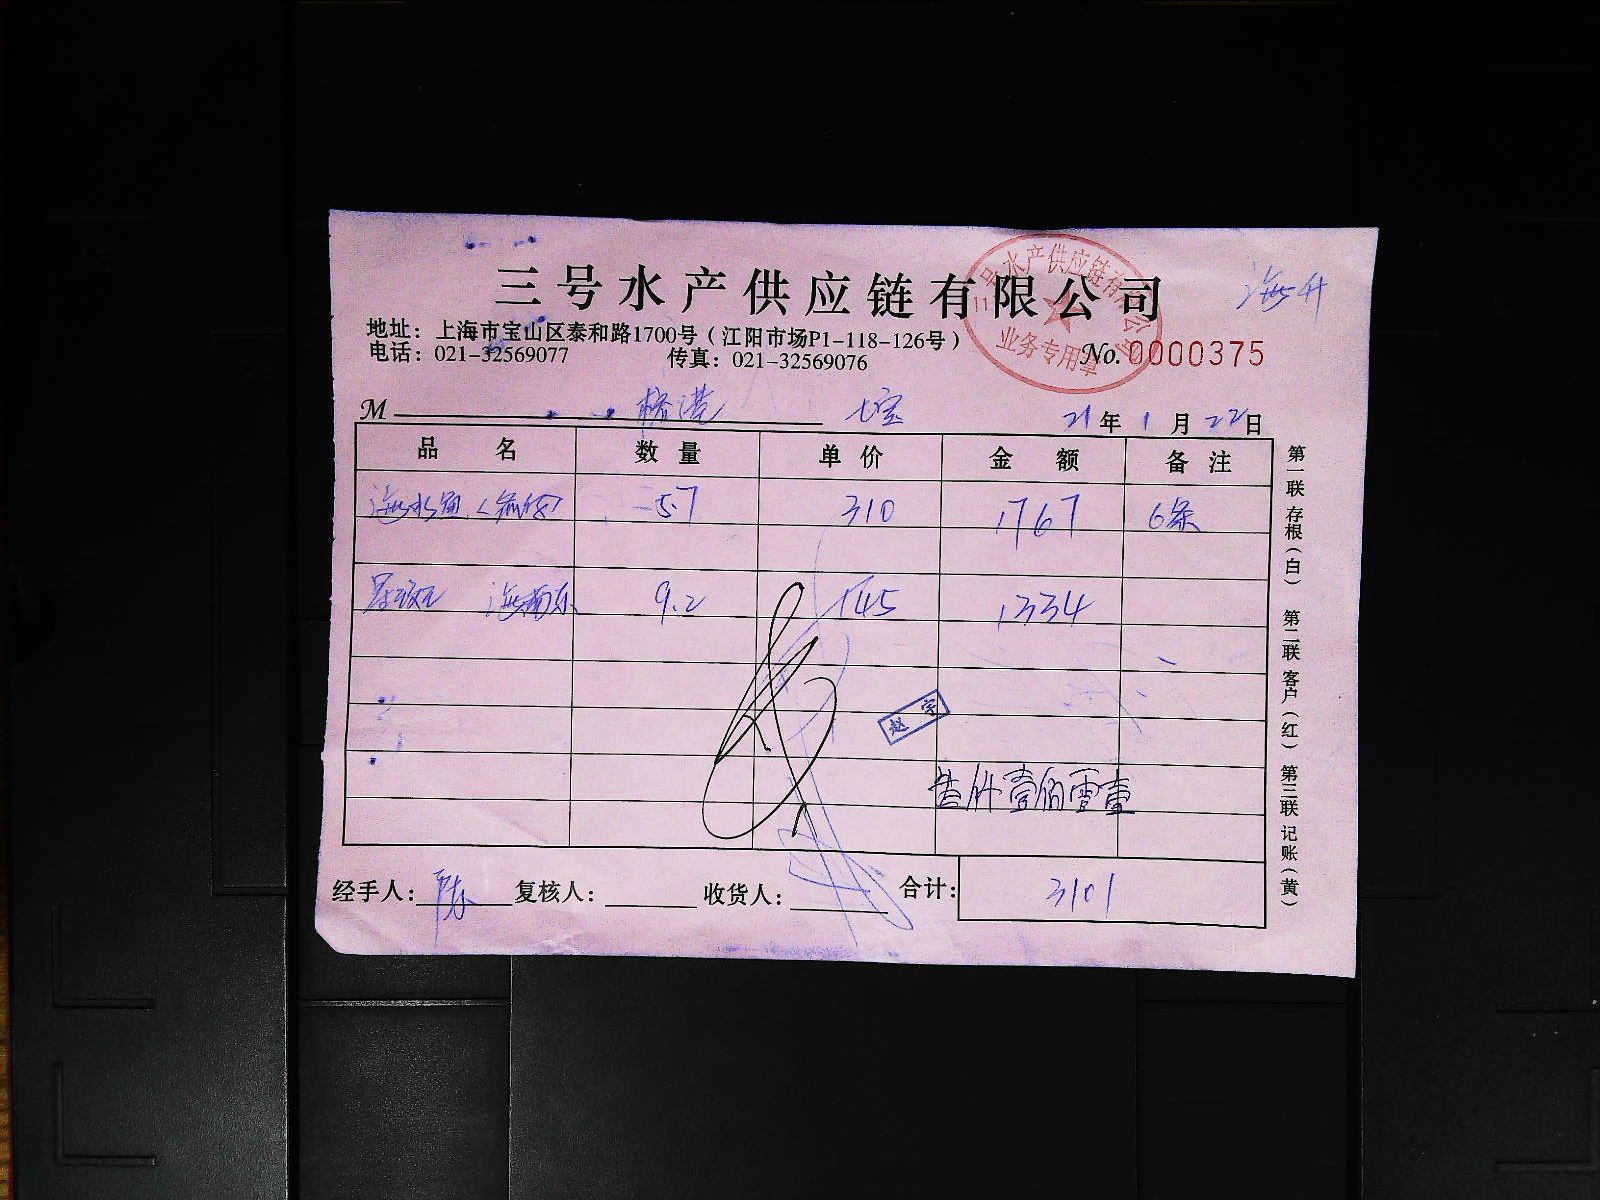 三号水产供应链有限公司
海升
三号水产供应链有限公司
业务专用章
地址：上海市宝山区泰和路1700号（江阳市场P1-118-126号）
电话：021-32569077 传真：021-32569076
No. 0000375
M 榕港 七宝 21年1月22日
品名 数量 单价 金额 备注
5.7 310 1767 6条
9.2 145 1334
赵宇
叁仟壹佰零壹
经手人：陈 复核人： 收货人： 合计：3101
第一联 存根（白） 第二联 客户（红） 第三联 记账（黄）